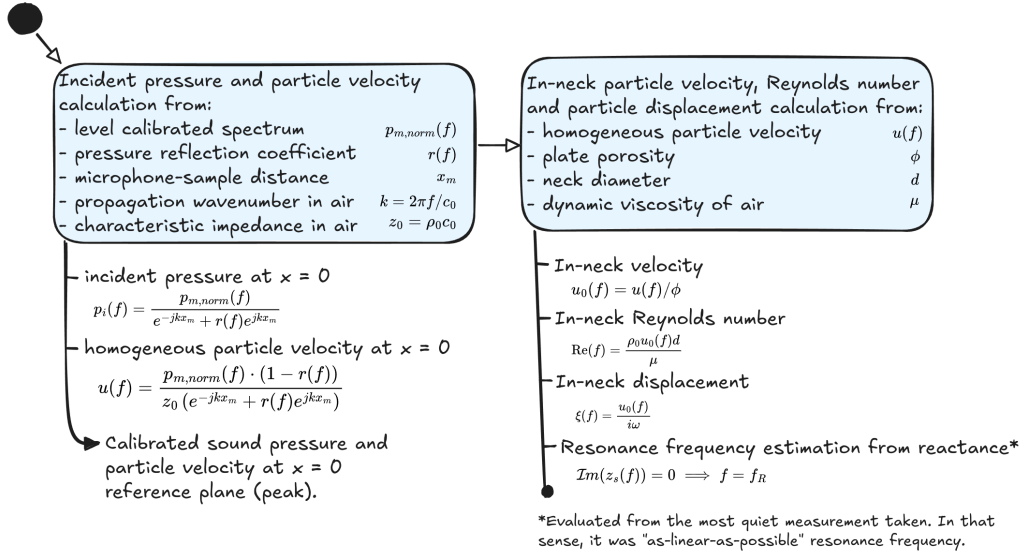 Incident pressure and particle velocity
calculation from:
- level calibrated spectrum p_{m,norm}(f)
- pressure reflection coefficient r(f)
- microphone-sample distance x_m
- propagation wavenumber in air k = 2πf/c_0
- characteristic impedance in air z_0 = ρ_0c_0
incident pressure at x = 0
p_i(f) = \frac{p_{m,norm}(f)}{e^{-jkx_m} + r(f)e^{jkx_m}}
homogeneous particle velocity at x = 0
u(f) = \frac{p_{m,norm}(f) · (1 − r(f))}{z_0 (e^{-jkx_m} + r(f)e^{jkx_m})}
Calibrated sound pressure and
particle velocity at x = 0
reference plane (peak).
In-neck particle velocity, Reynolds number
and particle displacement calculation from:
- homogeneous particle velocity u(f)
- plate porosity ϕ
- neck diameter d
- dynamic viscosity of air μ
In-neck velocity
u_0(f) = u(f)/ϕ
In-neck Reynolds number
Re(f) = \frac{ρ_0u_0(f)d}{μ}
In-neck displacement
ξ(f) = \frac{u_0(f)}{iω}
Resonance frequency estimation from reactance*
Im(z_s(f)) = 0 ⟹ f = f_R
*Evaluated from the most quiet measurement taken. In that
sense, it was "as-linear-as-possible" resonance frequency.